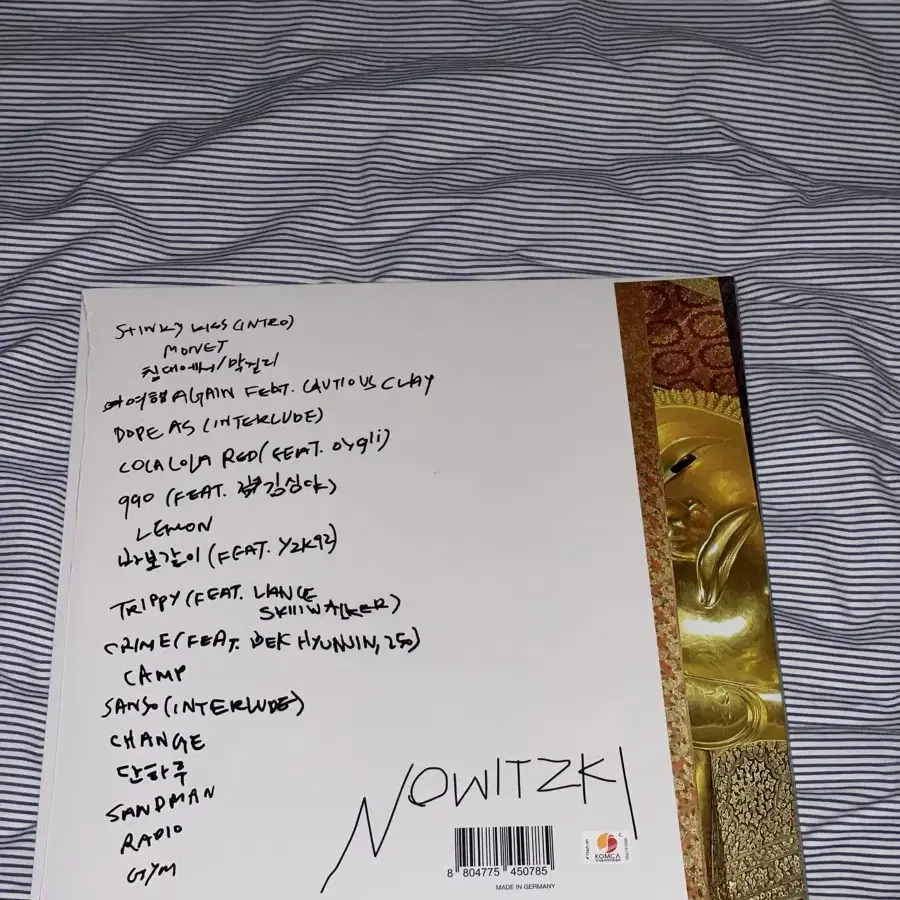 STINKY KISS (INTRO)
MONET
침대에서/막걸리
여행 AGAIN FEAT. CAUTIOUS CLAY
DOPE AS (INTERLUDE)
COCA COLA RED (FEAT. oygli)
990 (FEAT. 김심야)
LEMON
바보같이 (FEAT. Y2K92)
TRIPPY (FEAT. LANCE
SKIIIWALKER)
CRIME (FEAT. BEK HYUNJIN, 250)
CAMP
SANSO (INTERLUDE)
CHANGE
단하루
SANDMAN
RADIO
GYM
NOWITZKI
8 804775 450785
KOMCA
MADE IN GERMANY